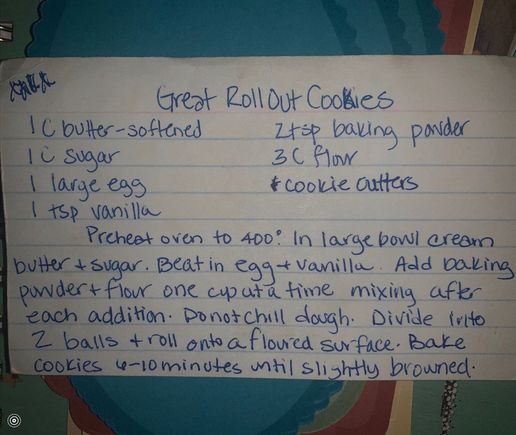 Great Roll Out Cookies
1 C butter-softened
2 tsp baking powder
1 C sugar
3 C flour
1 large egg
cookie cutters
1 tsp vanilla
Preheat oven to 400°. In large bowl cream
butter + sugar. Beat in egg + vanilla. Add baking
powder + flour one cup at a time mixing after
each addition. Do not chill dough. Divide into
2 balls + roll onto a floured surface. Bake
cookies 6-10 minutes until slightly browned.